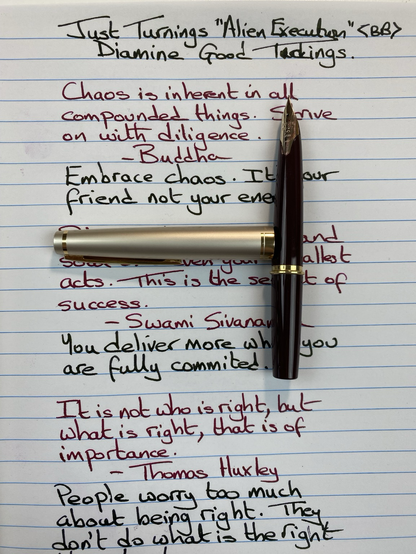 Just Turnings "Alien Execution" <BB>
Diamine Good Tidings.
Chaos is inherent in all
compounded things. Strive
on with diligence.
- Buddha
Embrace chaos. It our
friend not your ene
and
even your allest
acts. This is the se t of
success.
- Swami Sivanan
You deliver more wh you
are fully commited.
It is not who is right, but
what is right, that is of
importance.
- Thomas Huxley
People worry too much
about being right. They
don't do what is the right